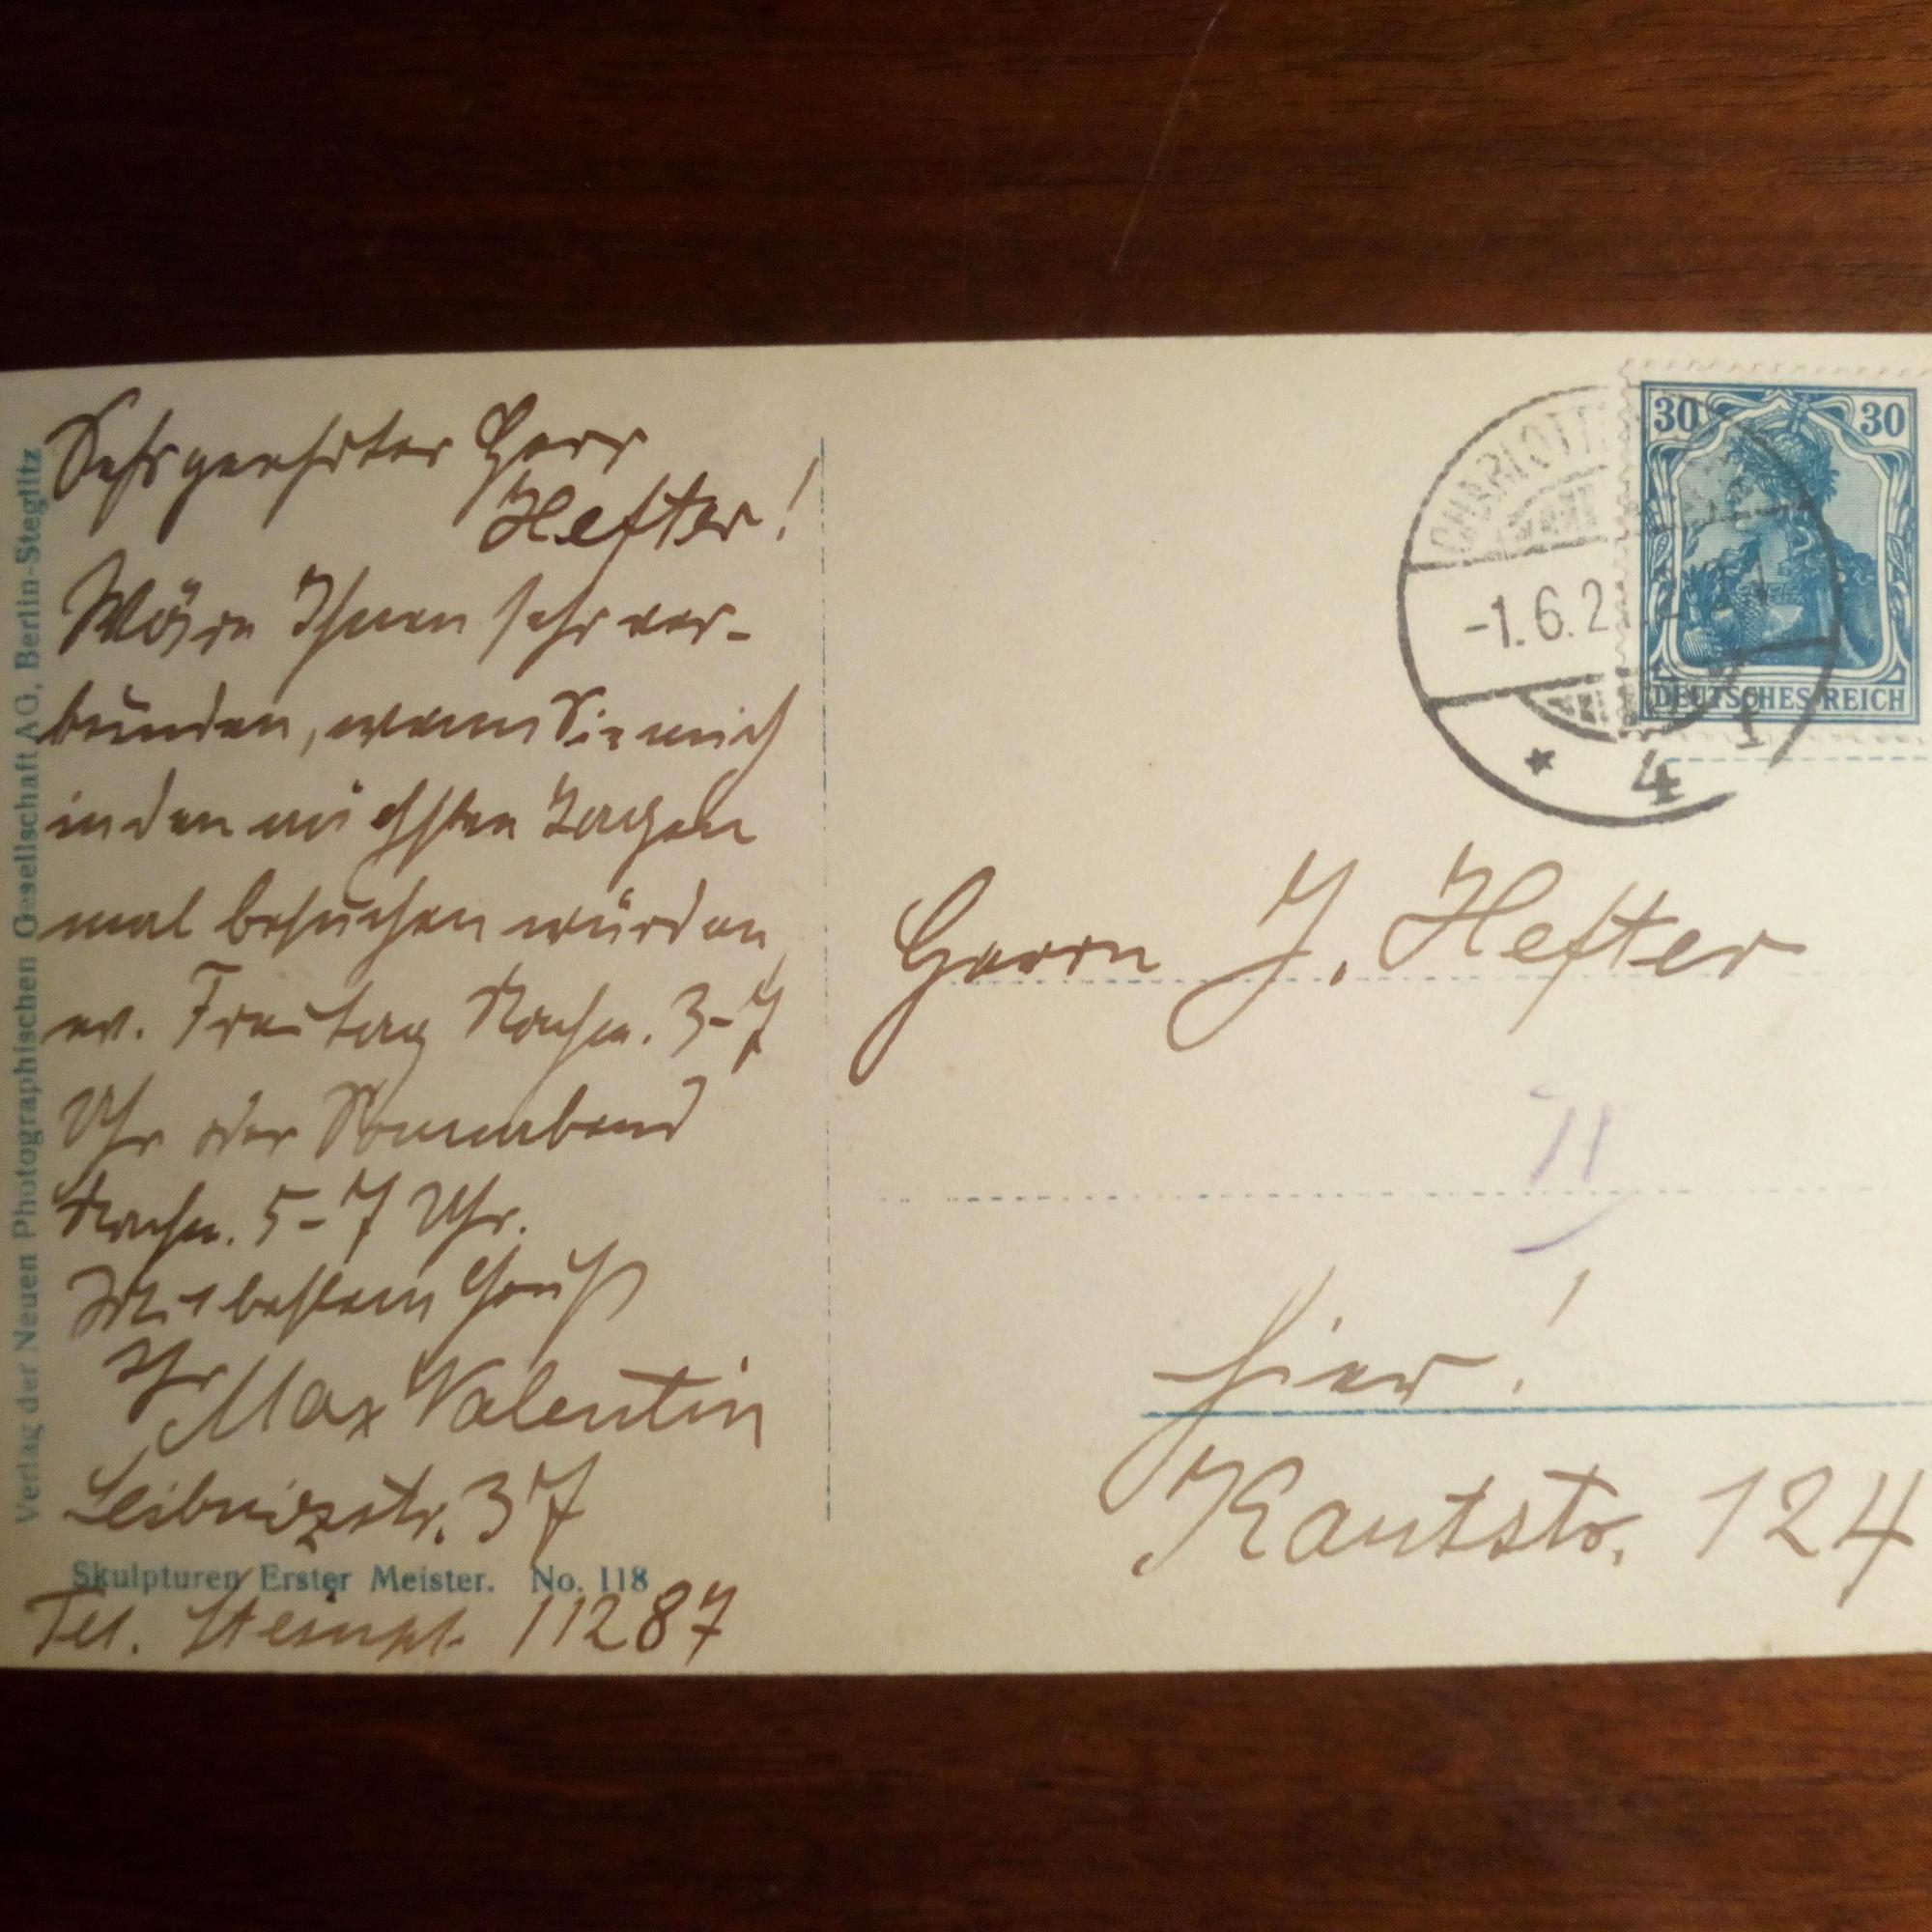 Sehr geehrter Herr
Hefter!
Wäre Ihnen sehr ver-
bunden, wenn Sie mich
in den nächsten Tagen
mal besuchen würden
ev. Freitag Nachm. 3-7
Uhr oder Sonnabend
Nachm. 5-7 Uhr.
Mit bestem Gruß
Ihr Max Valentin
Leibnizstr. 37
Skulpturen Erster Meister. No. 118
Tel. Steinpl. 11287
Verlag der Neuen Photographischen Gesellschaft AG, Berlin-Steglitz
30 30
DEUTSCHES REICH
-1.6.2
* 4
Herrn J. Hefter
hier!
Kantstr. 124